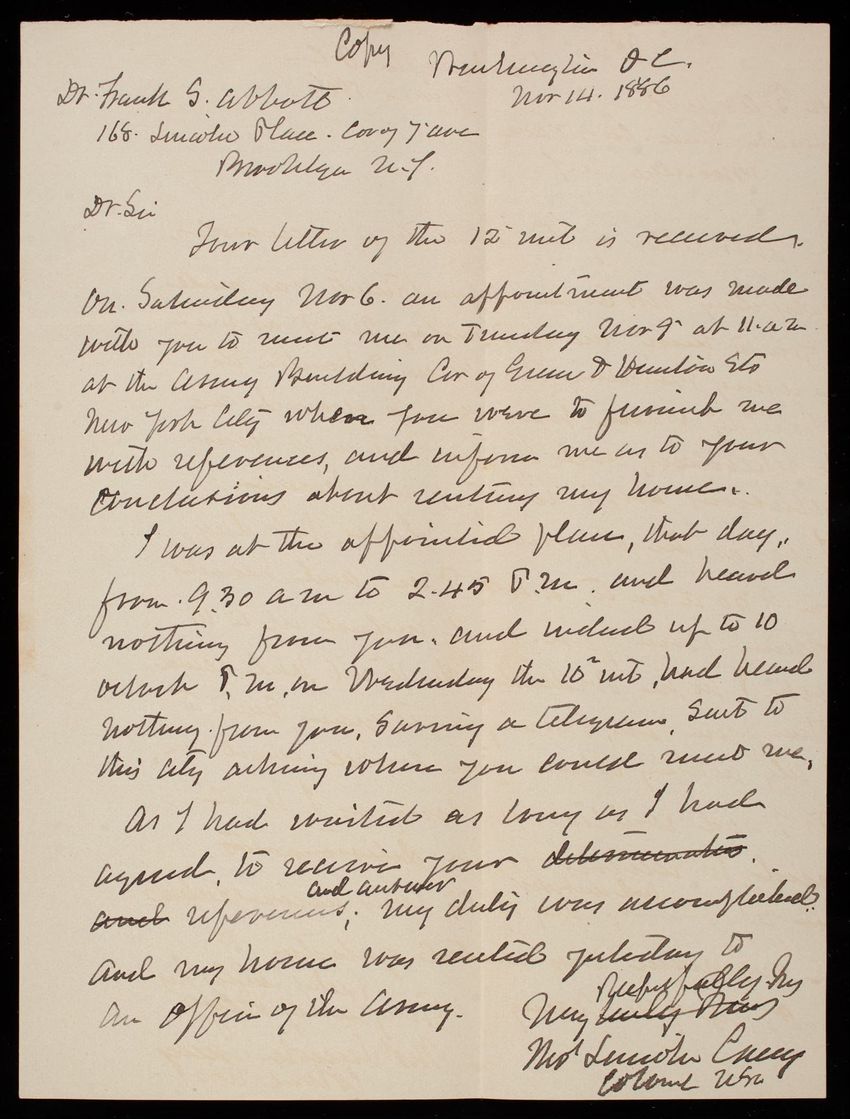 Copy
Washington D.C.
Nov 14. 1886
Dr. Frank S. Abbott
168. Lincoln Place. Cor of 7 ave
Brooklyn N.Y.
Dr. Sir
Your letter of the 12 inst is received.
On. Saturday Nov 6. an appointment was made
with you to meet me on Tuesday Nov 9 at 11. a m
at the Army Building Cor of Greene & Houston Sts
New York City where you were to furnish me
with references, and inform me as to your
conclusions about renting my house.
I was at the appointed place, that day,
from. 9.30 a m to 2.45 P.m. and heard
nothing from you. and indeed up to 10
oclock P.m, on Wednesday the 10 inst, had heard
nothing from you, saving a telegram, sent to
this city asking where you could meet me.
As I had waited as long as I had
agreed, to receive your
and references, and answer; my duty was accomplished.
and my house was rented yesterday to
an Officer of the Army.
Respectfully
Very truly Yours
Thos Lincoln Casey
Colonel USA